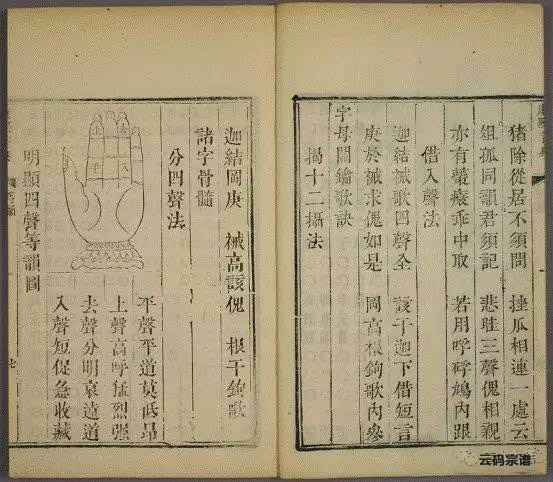 猪除從居不須問　挫瓜相連一處云
俎孤同韻君須記　悲眭三聲傀相親
亦有虀痿乖中取　若用呼　鳩内跟
借入聲法
迦結祴歌四聲全　該干迦下借短言
庚於祴求傀如是　岡高根鉤歌內參
字母關鑰歌訣
揭十二攝法
迦結岡庚　祴高該傀　根干鉤歌
諸字骨髓
分四聲法
平聲平道莫低昂
上聲高呼猛烈强
去聲分明哀遠道
入聲短促急收藏
上
去
平
入
明顯四聲等韻圖
七
云码宗谱